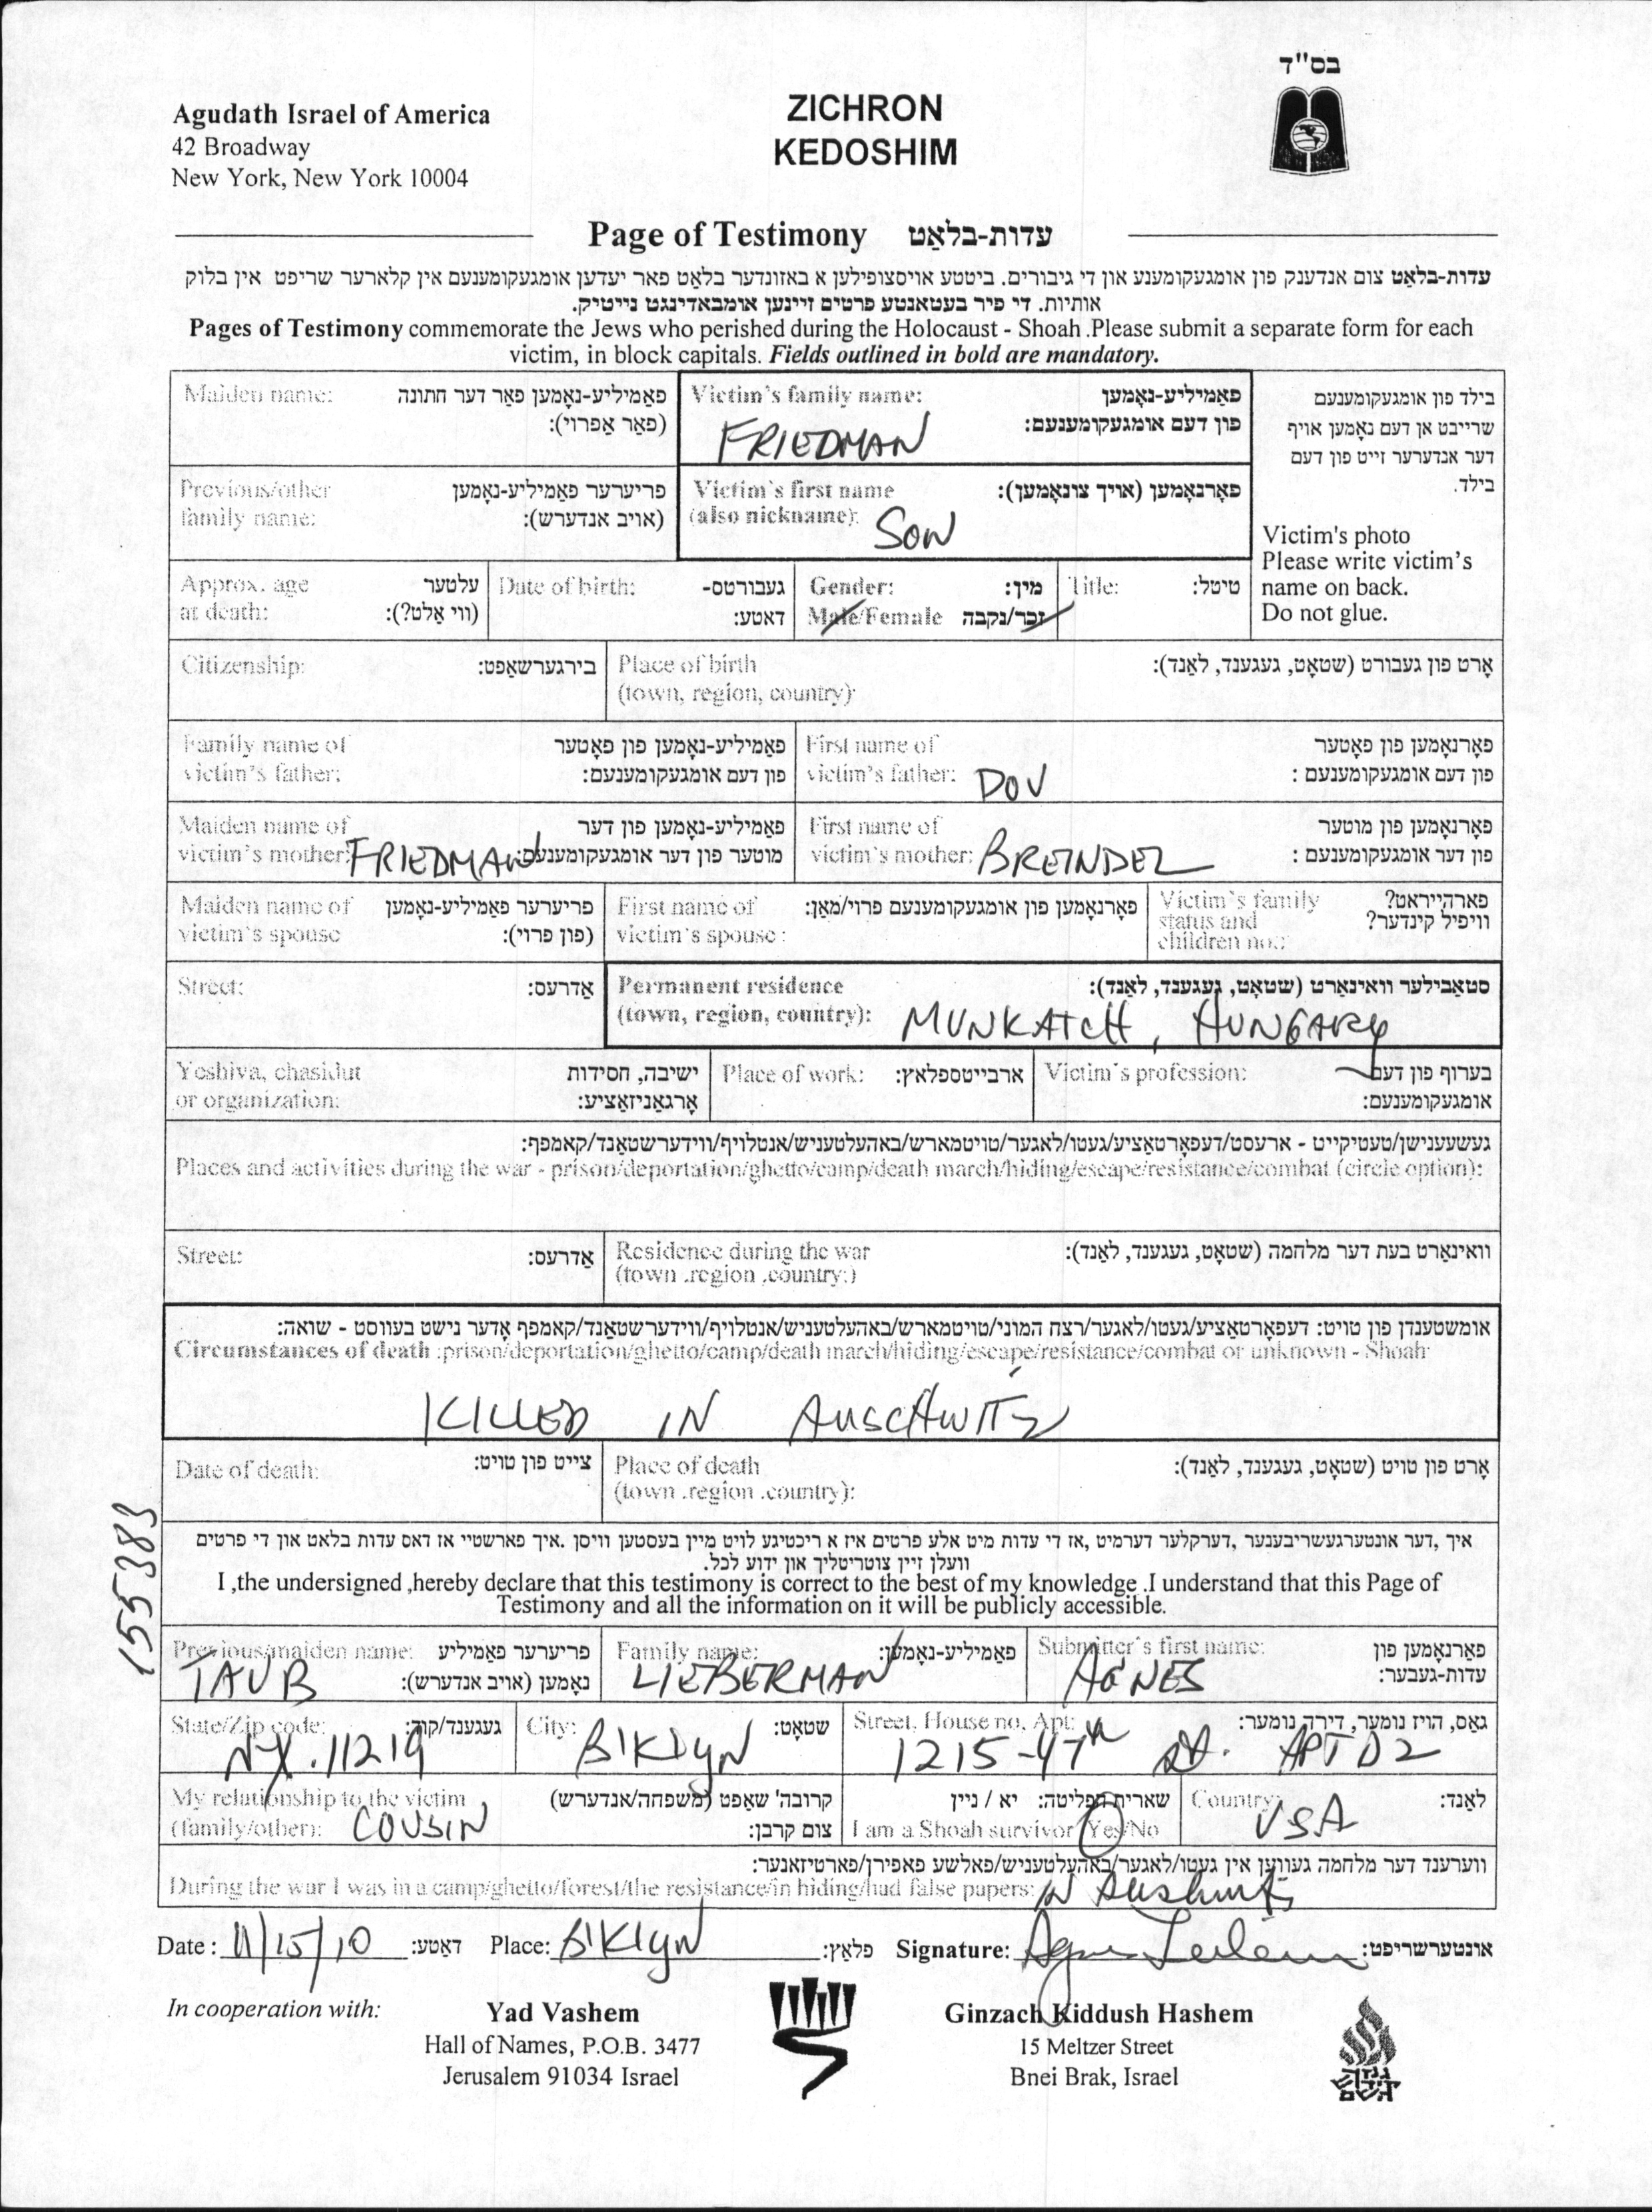 בס"ד
Agudath Israel of America
42 Broadway
New York, New York 10004
ZICHRON
KEDOSHIM
Page of Testimony עדות-בלאַט
עדות-בלאַט צום אנדענק פון אומגעקומענע און די גיבורים. ביטטע אויסצופילען א באזונדער בלאַט פאר יעדען אומגעקומענעם אין קלארער שריפט אין בלוק
אותיות. די פיר בעטאנטע פרטים זיינען אומבאדינגט נייטיק.
Pages of Testimony commemorate the Jews who perished during the Holocaust - Shoah .Please submit a separate form for each
victim, in block capitals. Fields outlined in bold are mandatory.
Maiden name: פאַמיליע-נאָמען פאר דער חתונה
(פאַר אַפרוי):
Victim's family name: פאַמיליע-נאָמען
פון דעם אומגעקומענעם:
FRIEDMAN
בילד פון אומגעקומענעם
שרייבט אן דעם נאָמען אויף
דער אנדערער זייט פון דעם
בילד.
Victim's photo
Please write victim's
name on back.
Do not glue.
Previous/other פריערער פאַמיליע-נאָמען
family name: (אויב אנדערש):
Victim's first name פאָרנאָמען (אויך צונאָמען):
(also nickname): SON
Approx. age עלטער
at death: (ווי אַלט?):
Date of birth: געבורטס-
דאטע:
Gender: מין:
Male/Female זכר/נקבה
Title: טיטל:
Citizenship: בירגערשאַפט:
Place of birth אָרט פון געבורט (שטאָט, געגענד, לאַנד):
(town, region, country):
Family name of פאַמיליע-נאָמען פון פאָטער
victim's father: פון דעם אומגעקומענעם:
First name of פאָרנאָמען פון פאָטער
victim's father: DOV פון דעם אומגעקומענעם :
Maiden name of פאַמיליע-נאָמען פון דער
victim's mother: FRIEDMAN מוטער פון דער אומגעקומענעם:
First name of פאָרנאָמען פון מוטער
victim's mother: BREINDEL פון דער אומגעקומענעם :
Maiden name of פריערער פאַמיליע-נאָמען
victim's spouse (פון פרוי):
First name of פאָרנאָמען פון אומגעקומענעם פרוי/מאַן:
victim's spouse :
Victim's family פארהייראט?
status and וויפיל קינדער?
children no.:
Street: אַדרעס:
Permanent residence סטאַבילער וואינאָרט (שטאָט, געגענד, לאַנד):
(town, region, country): MUNKATCH, HUNGARY
Yeshiva, chasidut ישיבה, חסידות
or organization: אָרגאַניזאַציע:
Place of work: ארבייטספלאץ:
Victim's profession: בערוף פון דעם
אומגעקומענעם:
געשעענישן/טעטיקייט - ארעסט/דעפאָרטאַציע/געטו/לאגער/טויטמארש/באהעלטעניש/אנטלויף/ווידערשטאַנד/קאמפף:
Places and activities during the war - prison/deportation/ghetto/camp/death march/hiding/escape/resistance/combat (circle option):
Street: אַדרעס:
Residence during the war וואינאָרט בעת דער מלחמה (שטאָט, געגענד, לאַנד):
(town .region .country:)
אומשטענדן פון טויט: דעפאָרטאַציע/געטו/לאגער/רצח המוני/טויטמארש/באהעלטעניש/אנטלויף/ווידערשטאַנד/קאמפף אָדער נישט בעווסט - שואה:
Circumstances of death :prison/deportation/ghetto/camp/death march/hiding/escape/resistance/combat or unknown - Shoah
KILLED IN AUSCHWITZ
Date of death: צייט פון טויט:
Place of death אָרט פון טויט (שטאָט, געגענד, לאַנד):
(town .region .country):
155383
איך ,דער אונטערגעשריבענער ,דערקלער דערמיט ,אז די עדות מיט אלע פרטים איז א ריכטיגע לויט מיין בעסטען וויסן .איך פארשטיי אז דאס עדות בלאט און די פרטים
וועלן זיין צוטריטליך און ידוע לכל.
I ,the undersigned ,hereby declare that this testimony is correct to the best of my knowledge .I understand that this Page of
Testimony and all the information on it will be publicly accessible.
Previous/maiden name: פריערער פאַמיליע
TAUB נאָמען (אויב אנדערש):
Family name: פאַמיליע-נאָמען:
LIEBERMAN
Submitter's first name: פאָרנאָמען פון
AGNES עדות-געבער:
State/Zip code: געגענד/קוד:
N.Y. 11219
City: שטאָט:
B'KLYN
Street, House no, Apt: גאַס, הויז נומער, דירה נומער:
1215-47th St. APT D2
My relationship to the victim קרובה' שאַפט (משפחה/אנדערש)
(family/other): COUSIN צום קרבן:
שארית הפליטה: יא / ניין
I am a Shoah survivor Yes/No
Country: לאַנד:
USA
ווערענד דער מלחמה געווען אין געטו/לאגער/באהעלטעניש/פאלשע פאפירן/פארטיזאנער:
During the war I was in a camp/ghetto/forest/the resistance/in hiding/had false papers: IN
Date : 11/15/10 דאַטע: Place: B'KLYN פלאַץ: Signature: אונטערשריפט:
In cooperation with:
Yad Vashem
Hall of Names, P.O.B. 3477
Jerusalem 91034 Israel
Ginzach Kiddush Hashem
15 Meltzer Street
Bnei Brak, Israel
גנזך
קידוש
השם